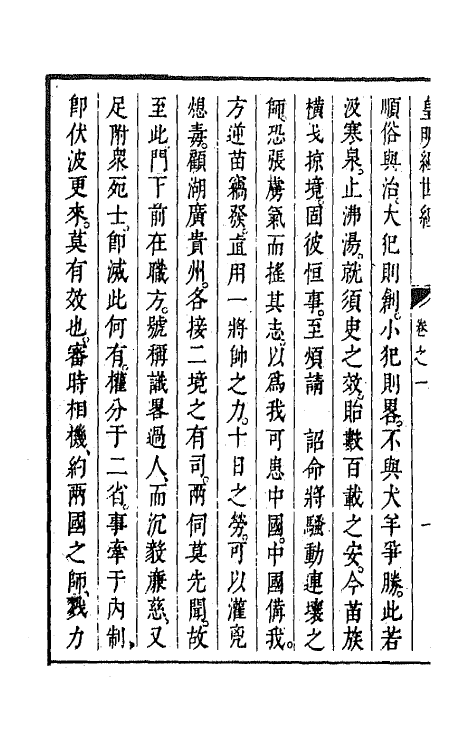 皇明經世編
卷之一
順俗與治。大犯則創。小犯則畧。不與犬羊爭勝。此若
汲寒泉。止沸湯。就須臾之效。貽數百載之安。今苗族
橫戈掠境。固彼恒事。至煩請　詔命將騷動連壤之
師。恐張虜氣而搖其志。以爲我可患中國。中國備我。
方逆苗竊發。直用一將帥之力。十日之勞。可以灌兇
熄毒。顧湖廣貴州。各接二境之有司。兩伺莫先聞。故
至此。門下前在職方。號稱識畧過人、而沉毅廉慈、又
足附眾死士、卽滅此何有。權分于二省。事牽于內制、
卽伏波更來。莫有效也。審時相機、約兩國之師、戮力